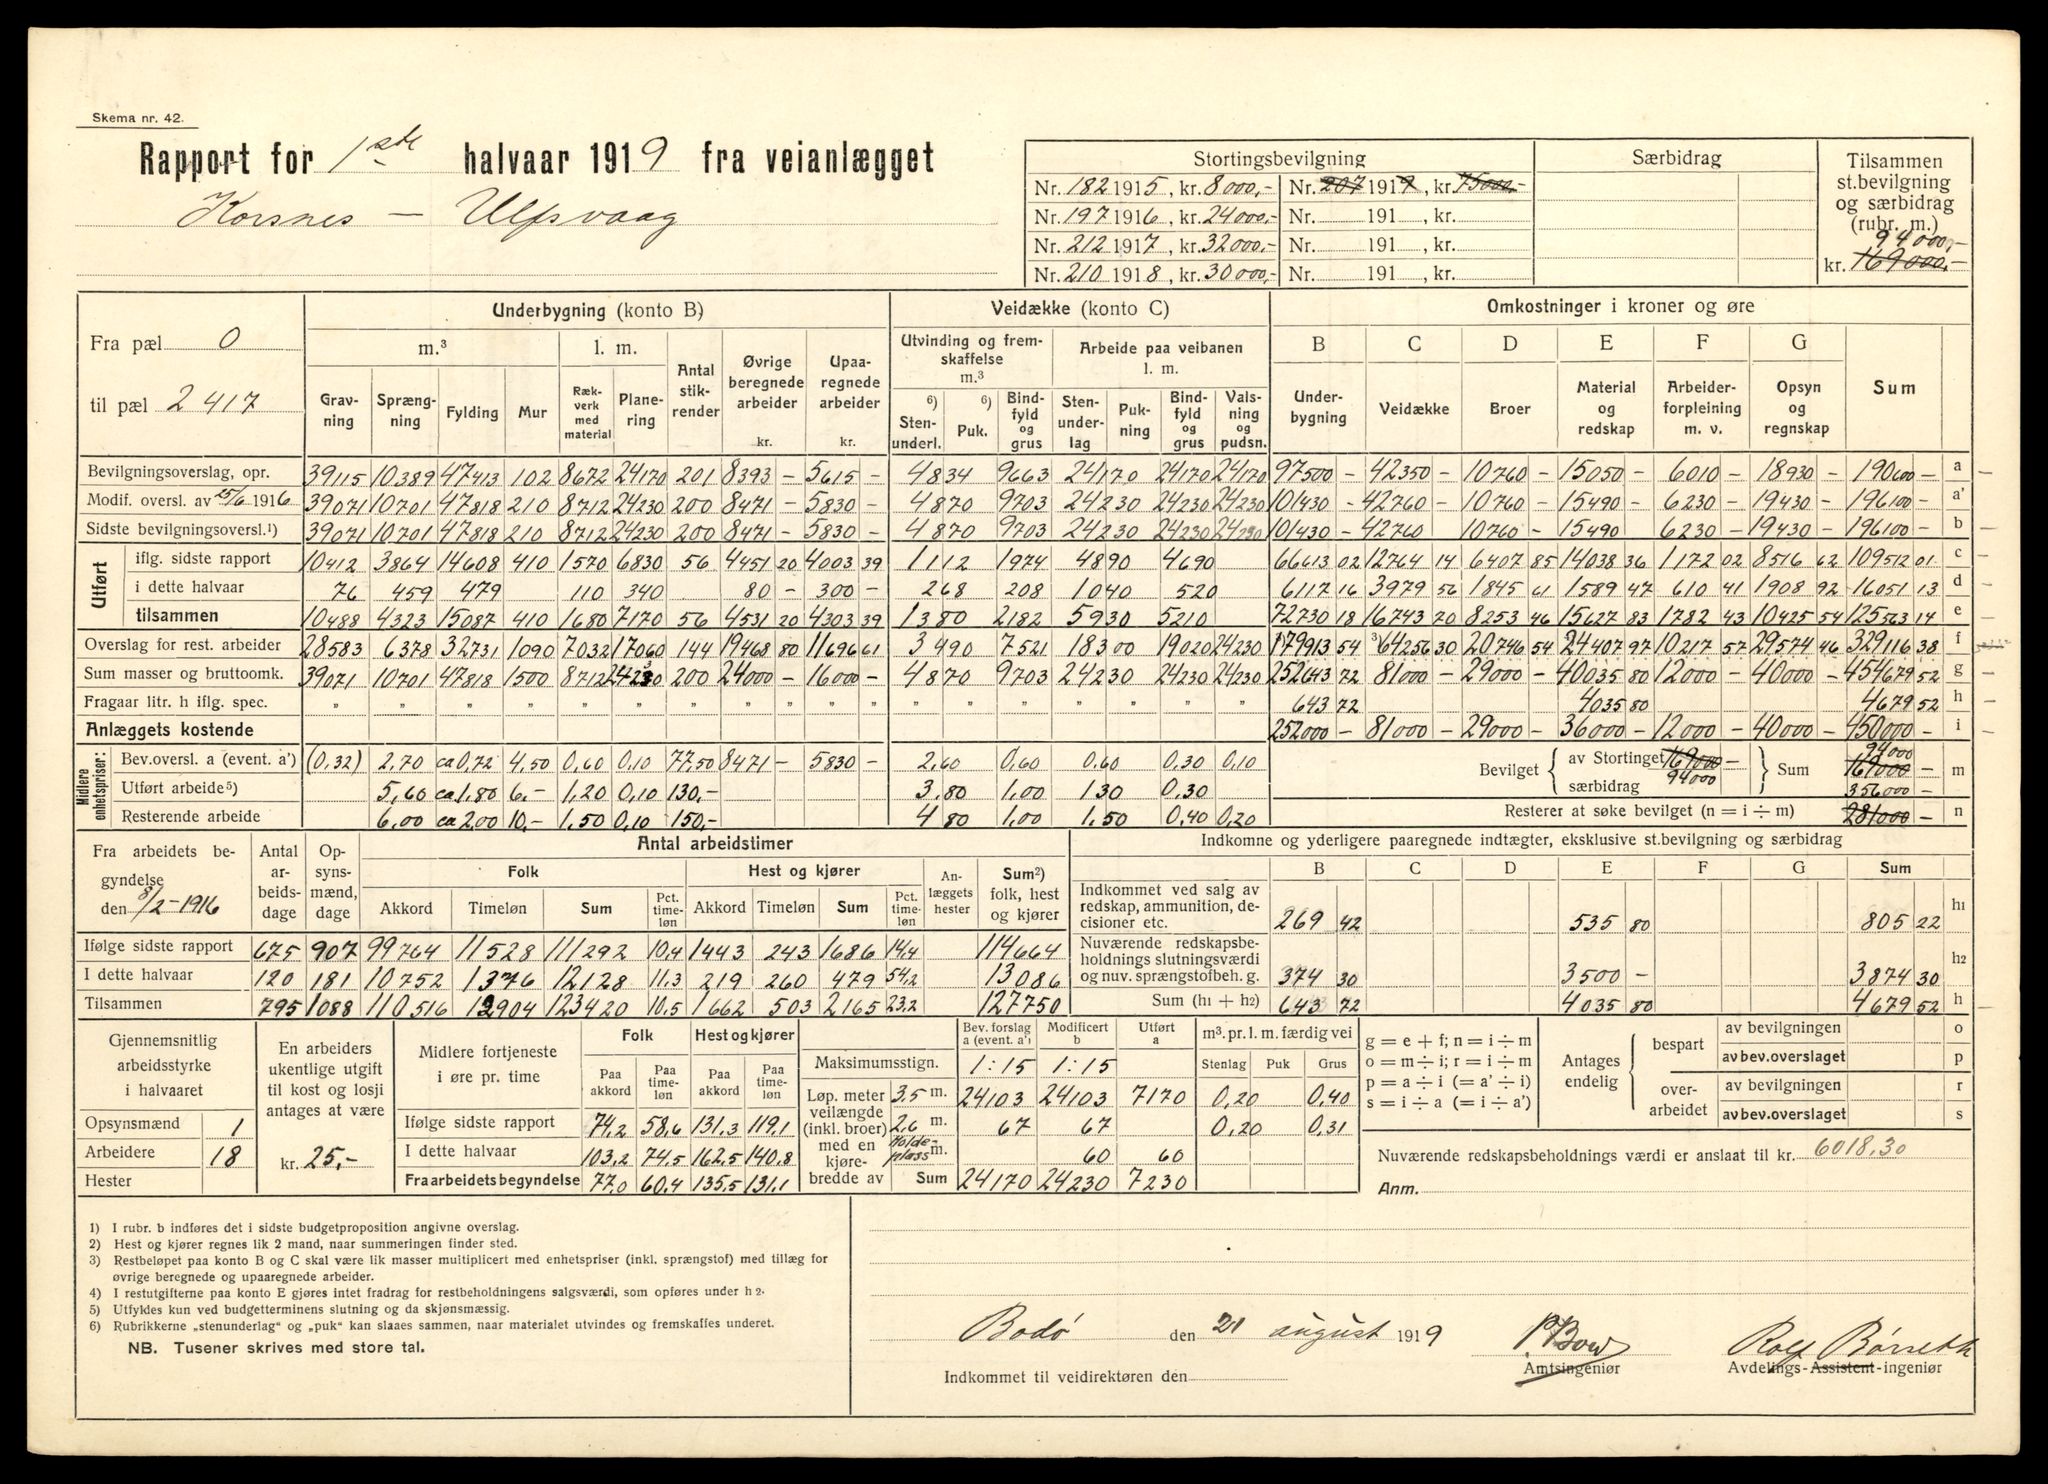 Skema nr. 42.
Rapport for 1ste halvaar 1919 fra veianlægget
Korsnes — Ulfsvaag
Stortingsbevilgning Særbidrag Tilsammen st.bevilgning og særbidrag (rubr. m.)
Nr. 182 1915, kr. 8000,- Nr. 207 1919, kr. 75000,-
Nr. 197 1916, kr. 24000,- Nr. 191 , kr.
Nr. 212 1917, kr. 32000,- Nr. 191 , kr. 94000,-
Nr. 210 1918, kr. 30000,- Nr. 191 , kr. kr. 169000,-
Fra pæl 0
til pæl 2417
Underbygning (konto B) Veidække (konto C) Omkostninger i kroner og øre
m.³ l. m. Antal stikrender Øvrige beregnede arbeider kr. Upaaregnede arbeider kr. Utvinding og fremskaffelse m.³ Arbeide paa veibanen l. m. B C D E F G
Gravning Sprængning Fylding Mur Rækverk med material Planering 6) Stenunderl. 6) Puk. Bindfyld og grus Stenunderlag Pukning Bindfyld og grus Valsning og pudsn. Underbygning Veidække Broer Material og redskap Arbeiderforpleining m. v. Opsyn og regnskap Sum
Bevilgningsoverslag, opr. 39115 10389 47413 102 8672 24170 201 8393 - 5615 - 4834 9663 24170 24170 24170 97500 - 42350 - 10760 - 15050 - 6010 - 18930 - 190600 - a
Modif. oversl. av 25/6 1916 39071 10701 47818 210 8712 24230 200 8471 - 5830 - 4870 9703 24230 24230 24230 101430 - 42760 - 10760 - 15490 - 6230 - 19430 - 196100 - a'
Sidste bevilgningsoversl.¹) 39071 10701 47818 210 8712 24230 200 8471 - 5830 - 4870 9703 24230 24230 24230 101430 - 42760 10760 - 15490 6230 - 19430 - 196100 - b
Utført
iflg. sidste rapport 10412 3864 14608 410 1570 6830 56 4451 20 4003 39 1112 1974 4890 4690 66613 02 12764 14 6407 85 14038 36 1172 02 8516 62 109512 01 c
i dette halvaar 76 459 479 110 340 80 - 300 - 268 208 1040 520 6117 16 3979 56 1845 61 1589 47 610 41 1908 92 16051 13 d
tilsammen 10488 4323 15087 410 1680 7170 56 4531 20 4303 39 1380 2182 5930 5210 72730 18 16743 70 8253 46 15627 83 1782 43 10425 54 125563 14 e
Overslag for rest. arbeider 28583 6378 32731 1090 7032 17060 144 19468 80 11696 61 3490 7521 18300 19020 24230 179913 54 64256 30 20746 54 24407 97 10217 57 29574 46 329116 38 f
Sum masser og bruttoomk. 39071 10701 47818 1500 8712 24230 200 24000 - 16000 - 4870 9703 24230 24230 24230 252643 72 81000 - 29000 - 40035 80 12000 - 40000 - 454679 52 g
Fragaar litr. h iflg. spec. " " " " " " " " " " " " " " 643 72 4035 80 4679 52 h
Anlæggets kostende 252000 - 81000 - 29000 - 36000 - 12000 - 40000 - 450000 - i
Midlere enhetspriser:
Bev.oversl. a (event. a') (0,32) 2,70 ca 0,72 4,50 0,60 0,10 77,50 8471 - 5830 - 2,60 0,60 0,60 0,30 0,10 Bevilget av Stortinget 169000 - særbidrag 94000 Sum 94000 169000 - m
Utført arbeide⁵) 5,60 ca 1,80 6,- 1,20 0,10 130,- 3,80 1,00 130 0,30 356000 -
Resterende arbeide 6,00 ca 2,00 10,- 1,50 0,10 150,- 4 80 1,00 1,50 0,40 0,20 Resterer at søke bevilget (n = i ÷ m) 281000 - n
Fra arbeidets begyndelse den 8/2-1916 Antal arbeidsdage Opsynsmænd, dage Antal arbeidstimer
Folk Hest og kjører Anlæggets hester Sum²) folk, hest og kjører
Akkord Timeløn Sum Pct. timeløn Akkord Timeløn Sum Pct. timeløn
Ifølge sidste rapport 675 907 99764 11528 111292 10,4 1443 243 1686 14,4 114664
I dette halvaar 120 181 10752 1376 12128 11,3 219 260 479 54,2 13086
Tilsammen 795 1088 110516 12904 123420 10,5 1662 503 2165 23,2 127750
Indkomne og yderligere paaregnede indtægter, eksklusive st.bevilgning og særbidrag
B C D E F G Sum
Indkommet ved salg av redskap, ammunition, decisioner etc. 269 42 535 80 805 22 h1
Nuværende redskapsbeholdnings slutningsværdi og nuv. sprængstofbeh. g. 374 30 3500 - 3874 30 h2
Sum (h1 + h2) 643 72 4035 80 4679 52 h
Gjennemsnitlig arbeidsstyrke i halvaaret
Opsynsmænd 1
Arbeidere 18
Hester
En arbeiders ukentlige utgift til kost og losji antages at være
kr. 25,-
Midlere fortjeneste i øre pr. time Folk Hest og kjører
Paa akkord Paa timeløn Paa akkord Paa timeløn
Ifølge sidste rapport 74,2 58,6 131,3 119,1
I dette halvaar 103,2 74,5 162,5 140,8
Fra arbeidets begyndelse 77,0 60,4 135,5 131,1
Bev. forslag a (event. a') Modificert b Utført a m³. pr. l. m. færdig vei
Maksimumsstign. 1:15 1:15 Stenlag Puk Grus
Løp. meter veilængde (inkl. broer) med en kjørebredde av
3,5 m. 24103 24103 7170 0,20 0,40
2,6 m. 67 67 0,20 0,31
Holdeplass m. 60 60
Sum 24170 24230 7230
g = e + f; n = i ÷ m
o = m ÷ i; r = i ÷ m
p = a ÷ i (= a' ÷ i)
s = i ÷ a (= i ÷ a')
Antages endelig bespart av bevilgningen o
av bev.overslaget p
overarbeidet av bevilgningen r
av bev.overslaget s
Nuværende redskapsbeholdnings værdi er anslaat til kr. 6018,30
Anm.
1) I rubr. b indføres det i sidste budgetproposition angivne overslag.
2) Hest og kjører regnes lik 2 mand, naar summeringen finder sted.
3) Restbeløpet paa konto B og C skal være lik masser multiplicert med enhetspriser (inkl. sprængstof) med tillæg for
øvrige beregnede og upaaregnede arbeider.
4) I restutgifterne paa konto E gjøres intet fradrag for restbeholdningens salgsværdi, som opføres under h 2.
5) Utfyldes kun ved budgetterminens slutning og da skjønsmæssig.
6) Rubrikkerne „stenunderlag" og „puk" kan slaaes sammen, naar materialet utvindes og fremskaffes underet.
NB. Tusener skrives med store tal.
Bodø den 21 august 1919
Rolf Børseth
Amtsingeniør Avdelings-Assistent-ingeniør
Indkommet til veidirektøren den